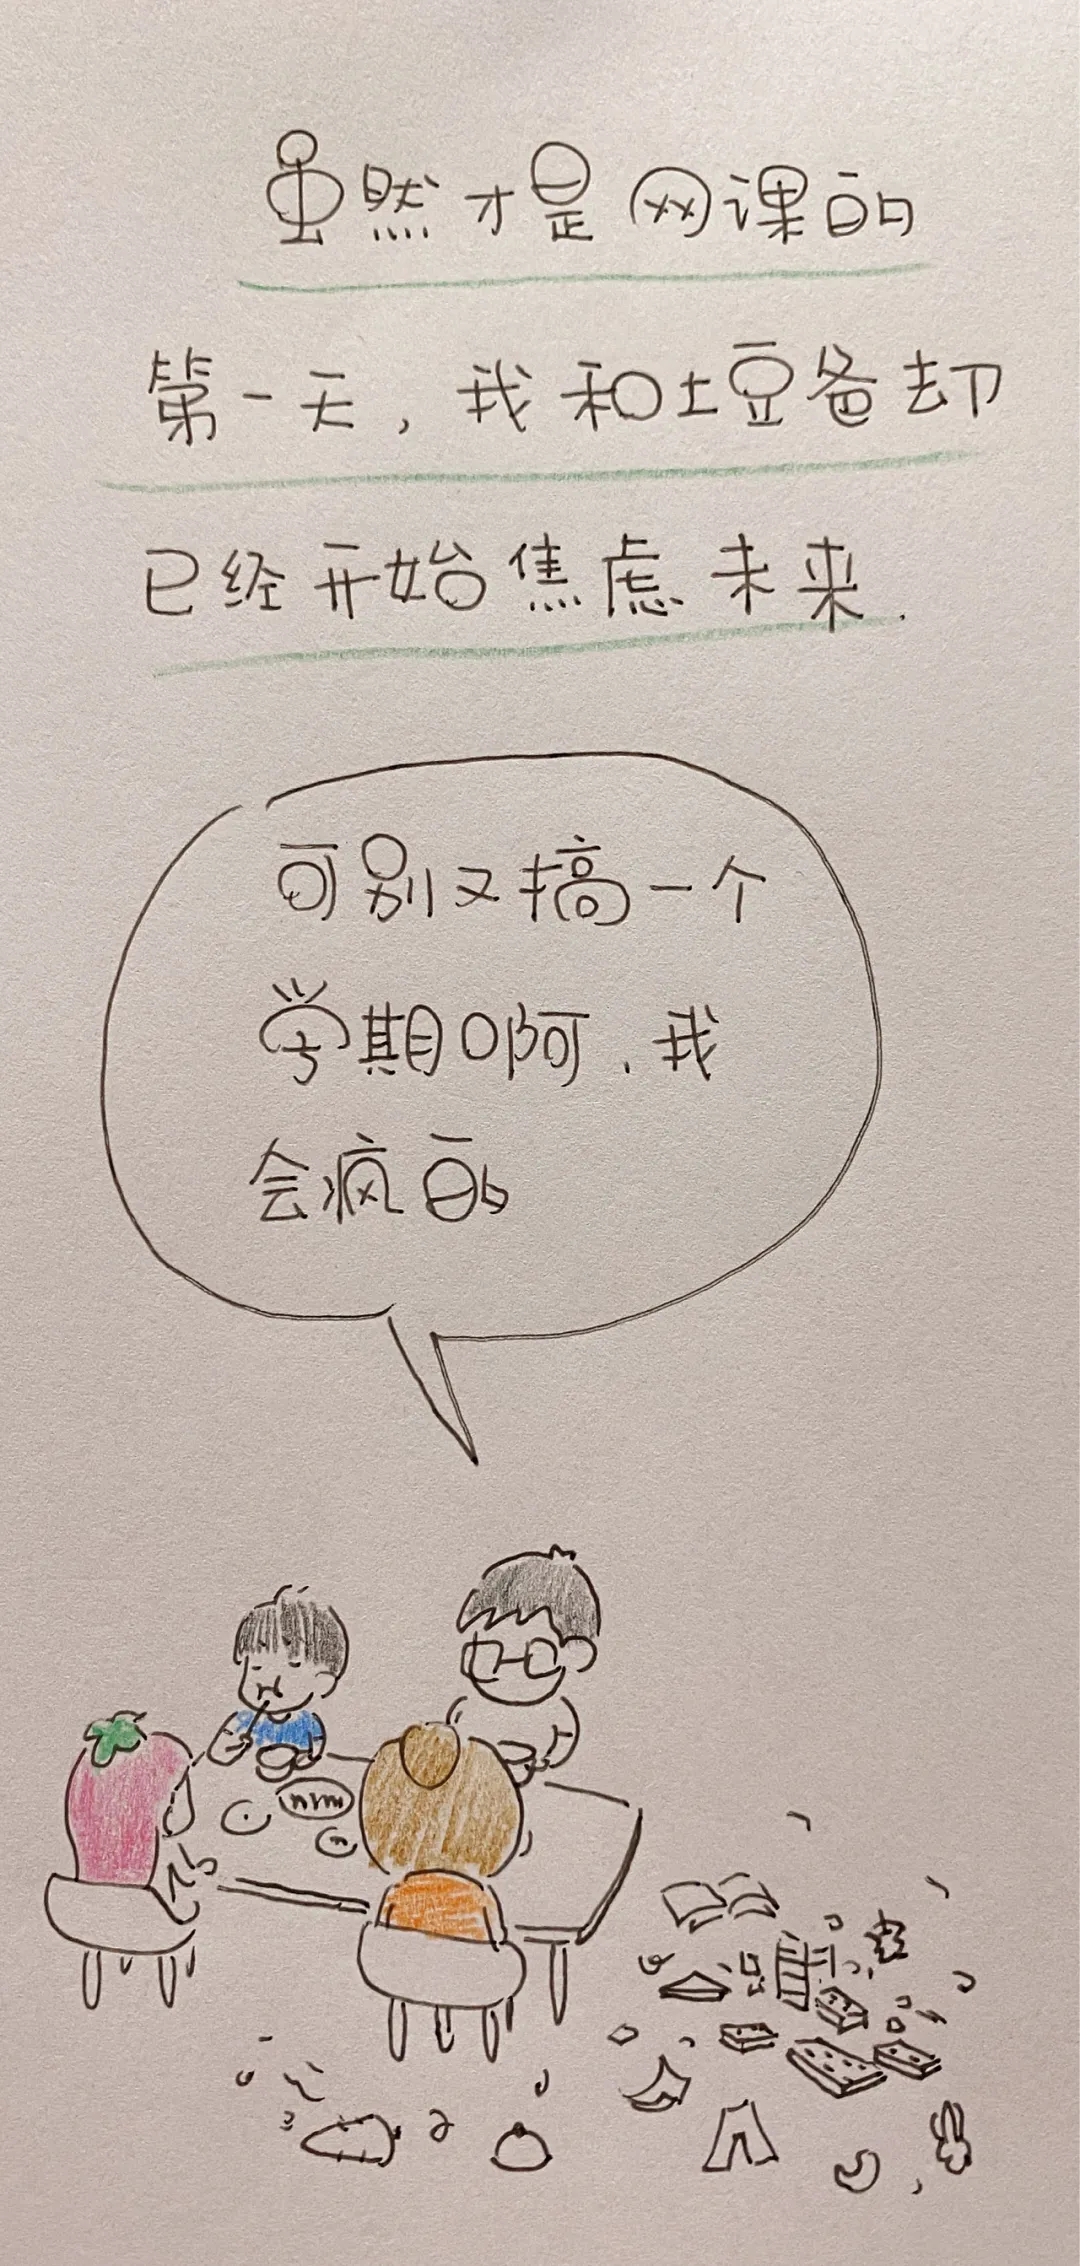 虽然才是网课的
第一天，我和土豆爸却
已经开始焦虑未来.
可别又搞一个
学期啊.我
会疯的